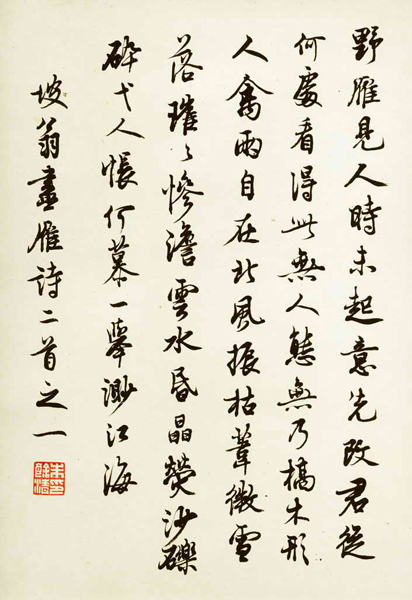 野雁見人時未起意先改君從
何處看得此無人態無乃槁木形
人禽兩自在北風振枯葦微雪
落璀々慘澹雲水昏晶熒沙礫
碎弋人悵何慕一舉渺江海
坡翁畫雁詩二首之一